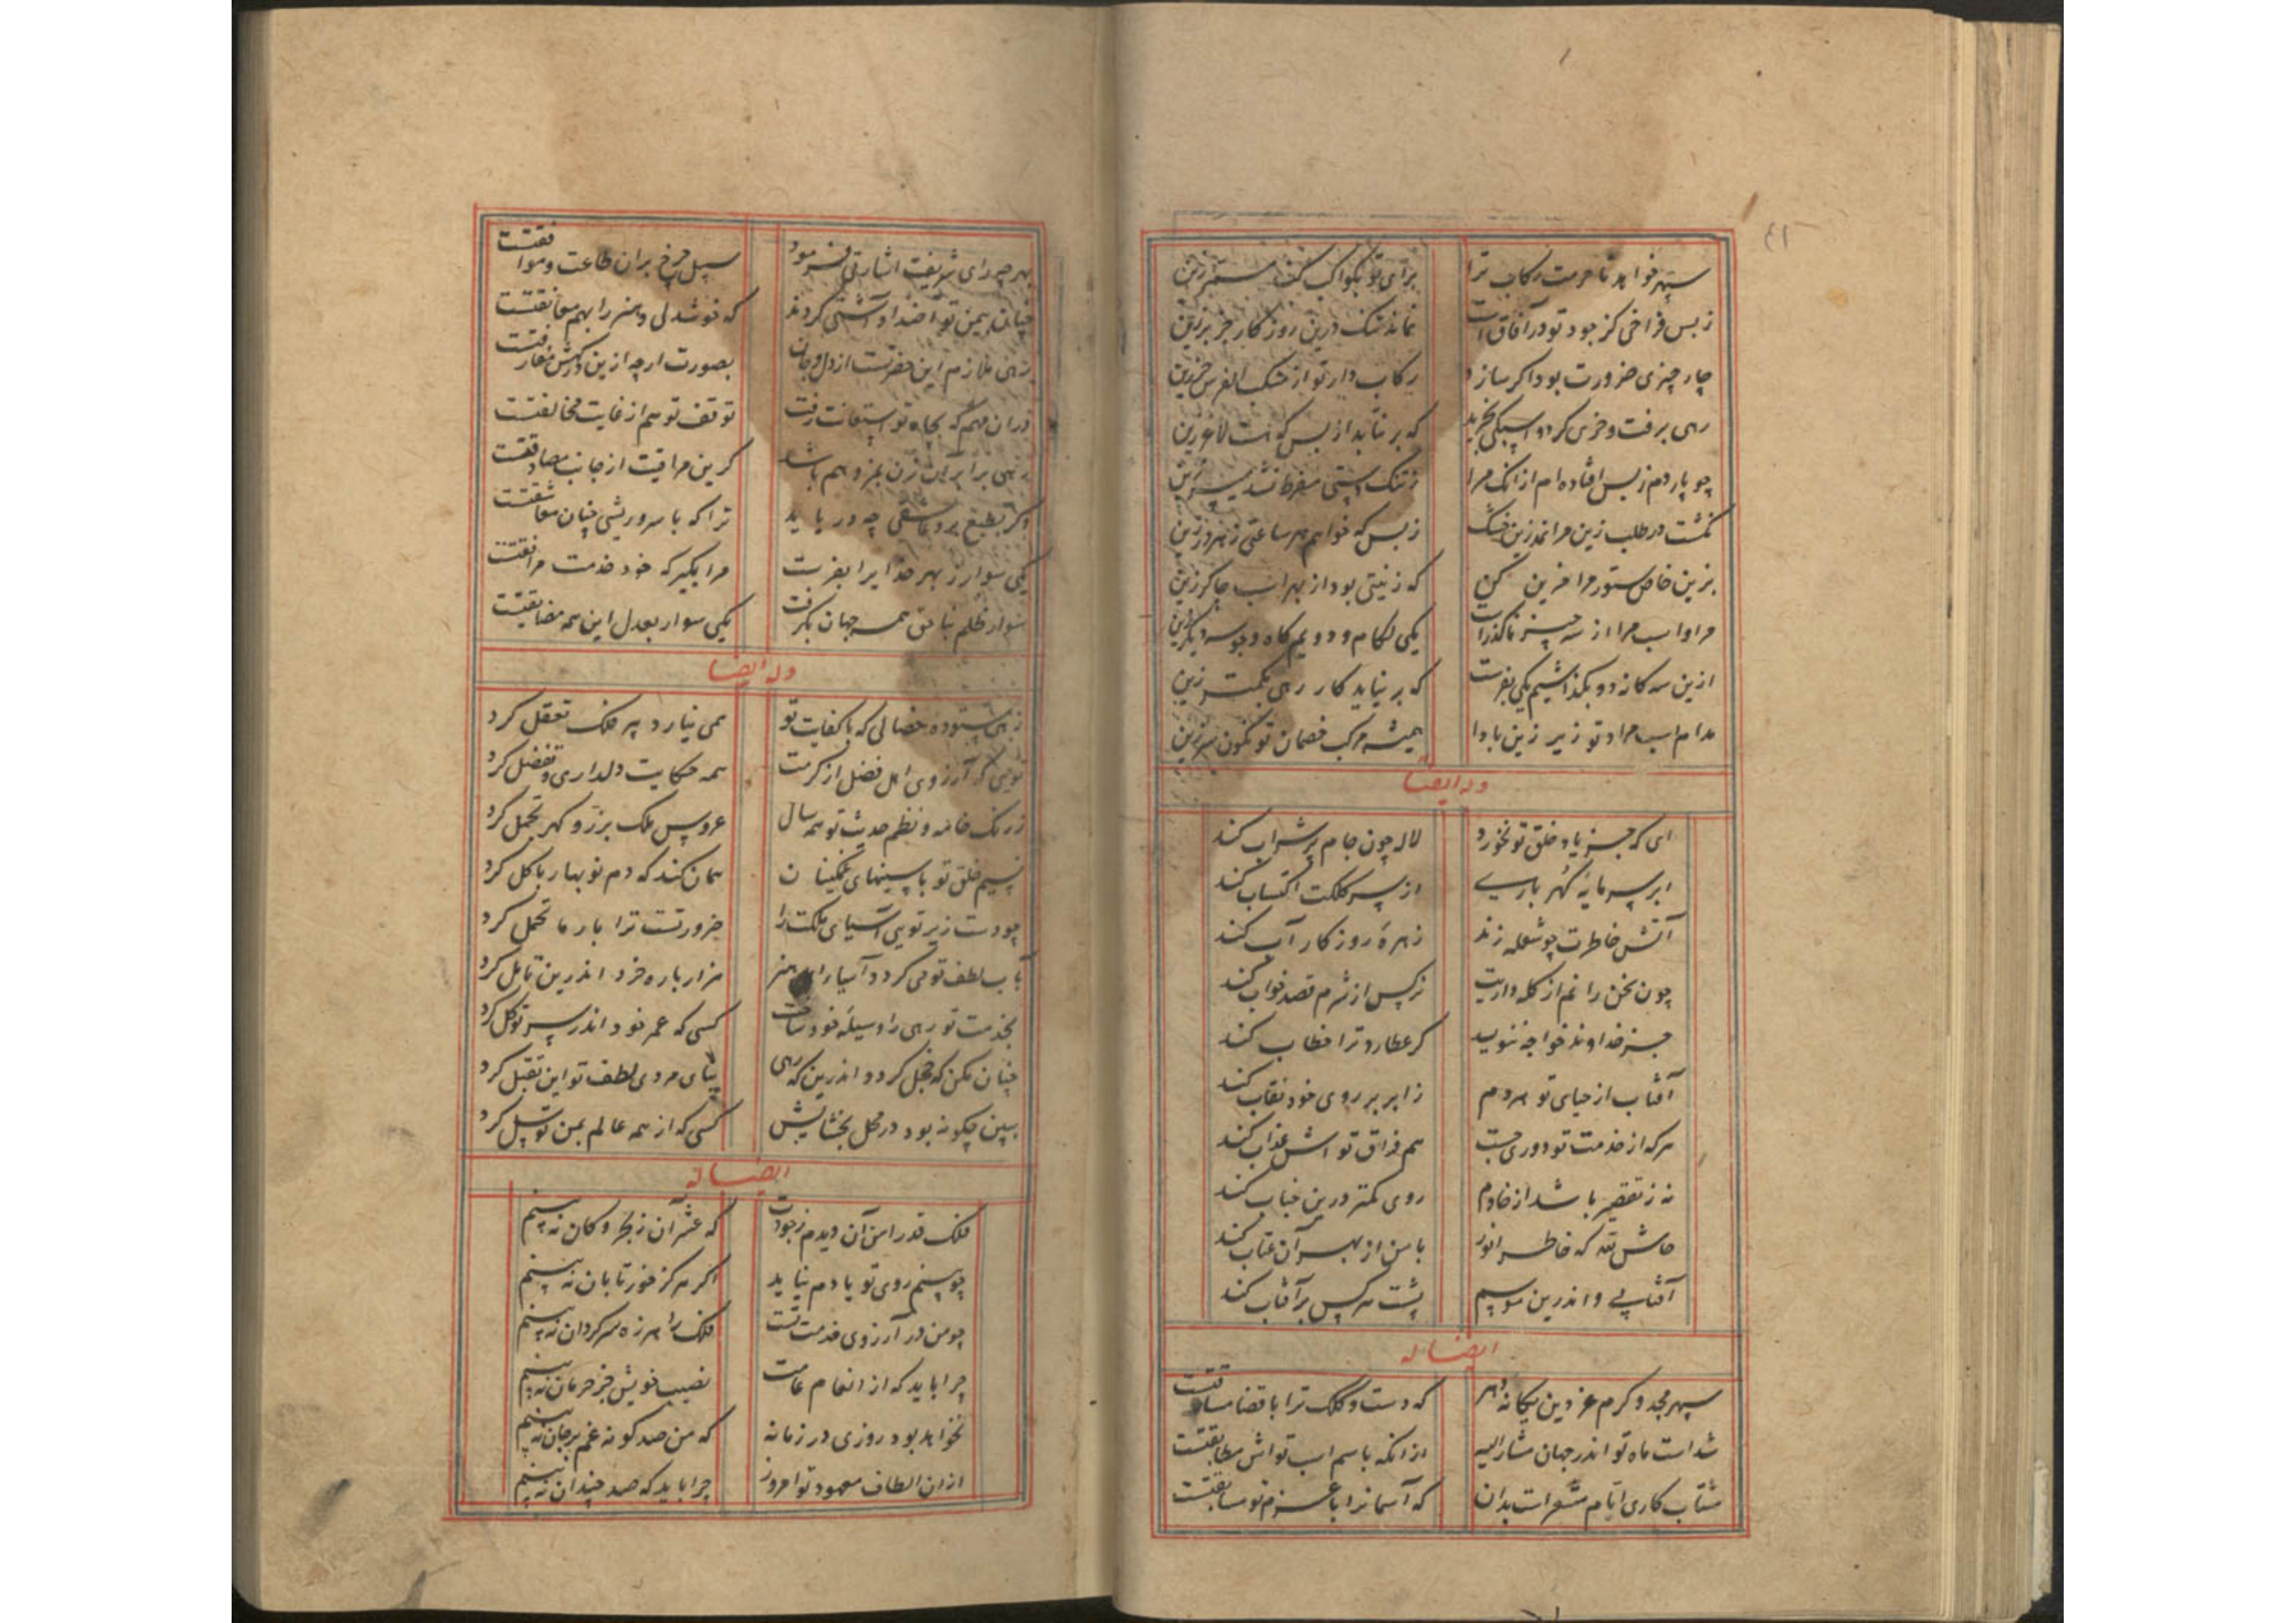 ٤١
سپهر خواهد تا حرمت رکاب ترا
برای تو بکواکب کند زین
ز بس فراخی کز جود تو در آفاق است
نماند تنک درین روزکار جز بر زین
چار چیزی ضرورت بود اکر سازد
رکاب دار تو از خنک زین
رهی برفت و خری کرد و اسبکی بخرید
که بر نتابد از بس که هست لاغر زین
چو پاردم ز پس افتاده ام از آنک مرا
ز تنک دستی مفرط نشد میسر زین
نکشت در طلب زین مرا نمدزین خشک
ز بس که خواهم هر ساعتی ز هر در زین
بزین خاص ستور مرا مزین کن
که زینتی بود از بهر اسب چاکر زین
مرا و اسب مرا از سه چیز ناکذرست
یکی لکام و دویم کاه و جو سه دیکر زین
ازین سه کانه دو بکذاشتیم یکی بفرست
که بر نیاید کار رهی بکمتر زین
مدام اسب مراد تو زیر زین بادا
همیشه مرکب خصمان تو نکون سر زین
وله ایضا
ای که جز یاد خلق تو نخورد
لاله چون جام پر شراب کند
ابر سرمایه کهر باری
از سر کلکت اکتساب کند
آتش خاطرت چو شعله زند
زهره روزکار آب کند
چون سخن رانم از کله داریت
نرکس از شرم قصد خواب کند
جز خداوند خواجه ننویسد
کر عطارد ترا خطاب کند
آفتاب از حیای تو هر دم
ز ابر بر روی خود نقاب کند
هرکه از خدمت تو دوری جست
هم فراق تو اش عذاب کند
نه ز تقصیر باشد از خادم
روی کمتر درین جناب کند
حاش لله که خاطر انور
با من از بهر آن عتاب کند
آفتابی و اندرین موسم
پشت هر کس بر آفتاب کند
ایضا له
سپهر مجد و کرم عز دین یکانه دهر
که دست و کلک ترا با قضا مساوقتست
شداست ماه تو اندر جهان مشار الیه
از انکه با سم اسب تو اش مطابقتست
شتاب کاری ایام مشعرست بدان
که آسمانرا با عزم تو مسابقتست
بهر چه رای شریفت اشارتی فرمود
سپهر چرخ بران طاعت و موافقتست
چنان بیمن تو اضداد آشتی کردند
که خوشدلی و هنر را بهم معانقتست
رهی ملازم این حضرتست از دل و جان
بصورت ار چه ازین درکهش مفارقتست
دران مهم که بجاه تو استعانت رفت
توقف تو هم از غایت مخالفتست
رهی برابر زن بمزد هم باشد
کرین مراقبت از جانب مصادقتست
وکر بطبع برد عاشقی چه دریابد
ترا که با سر و ریشی چنان معاشقتست
یکی سوار ز بهر خدایرا بفرست
مرا مکیر که خود خدمت مرافقتست
سوار ظلم بناحق همه جهان بکرفت
یکی سوار بعدل این همه مضایقتست
وله ایضا
زهی ستوده خصالی که با کفایت تو
همی نیارد پیر فلک تعقل کرد
تویی که آرزوی اهل فضل از کرمت
همه حکایت دلداری و تفضل کرد
ز رنک خامه و نظم حدیث تو همه سال
عروس ملک بزر و کهر تجمل کرد
نسیم خلق تو با سینهای غمکینان
همان کند که دم نوبهار با کل کرد
چو دست زیر تویی آسیای ملکت را
ضرورتست ترا بار ما تحمل کرد
بآب لطف تو می کردد آسیاء هنر
هزار باره خرد اندرین تامل کرد
بخدمت تو رهی را وسیله خود ساخت
کسی که عمر خود اندر سر توکل کرد
چنان مکن که خجل کردد اندرین که رهی
بنای مردی لطف تو این تقبل کرد
ببین چکونه بود در محل بخشایش
کسی که از همه عالم بمن توسل کرد
ایضا له
فلک قدرا من آن دیدم ز جودت
که عشر آن ز بحر و کان نه بینم
چو بینم روی تو یادم نیاید
اکر هرکز خور تابان نه بینم
چو من در آرزوی خدمت تست
فلک را هرزه سرکردان نه بینم
چرا باید که از انعام عامت
نصیب خویش جز حرمان نه بینم
نخواهد بود روزی در زمانه
که من صد کونه غم بر جان نه بینم
ازان الطاف معهود تو امروز
چرا باید که صد چندان نه بینم